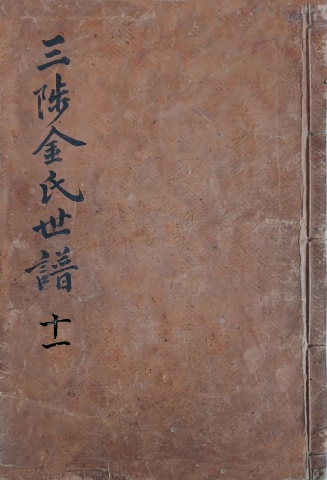 三陟金氏世譜
十一